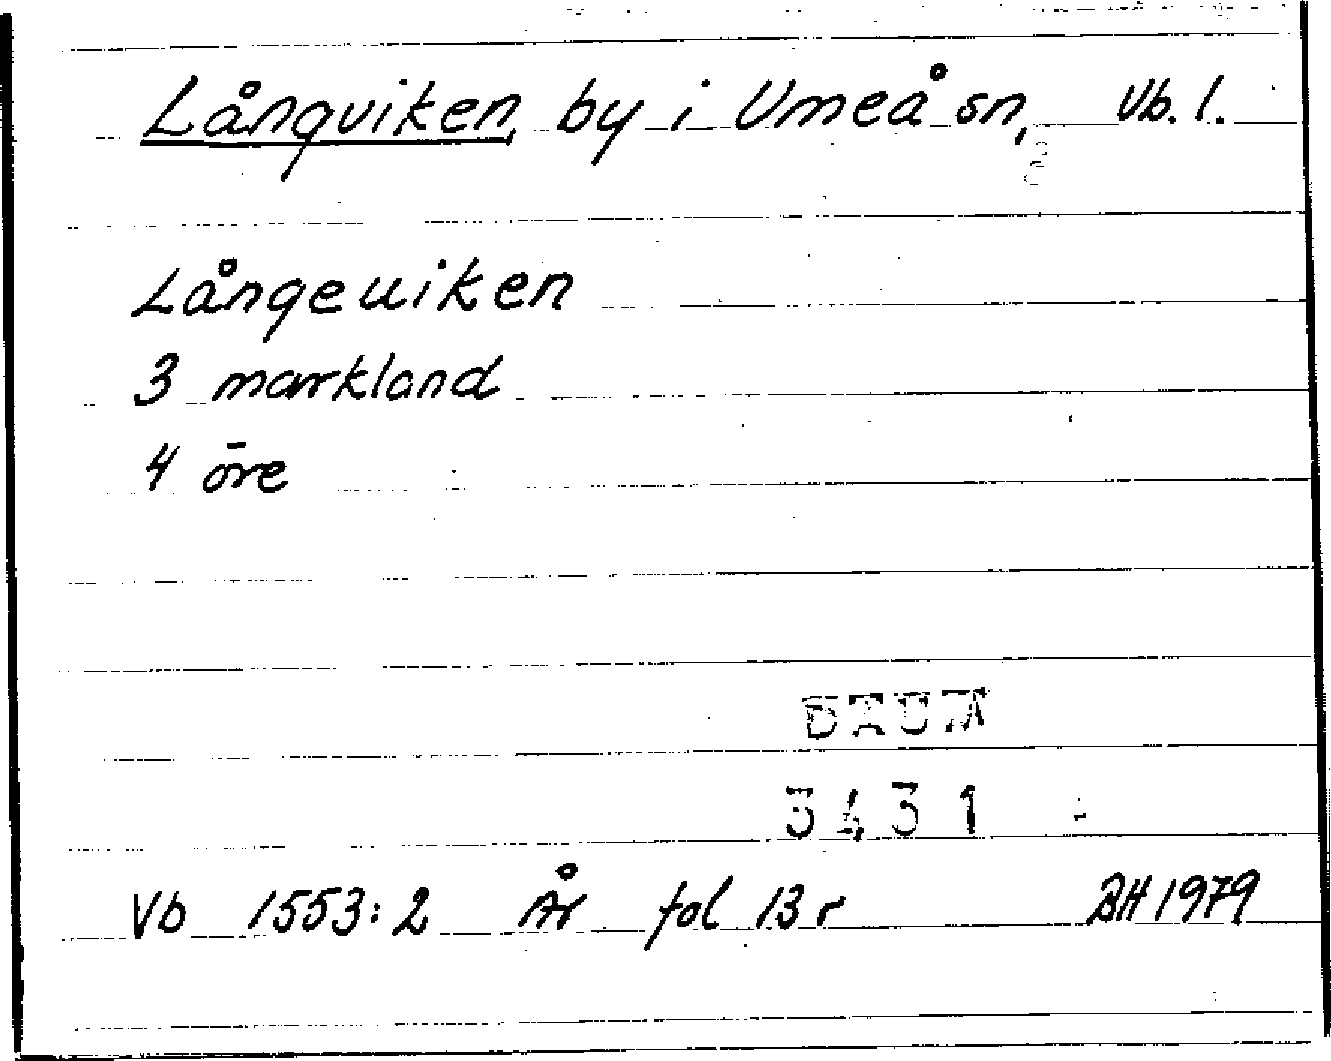 Långviken, by i Umeå sn, Vb. l.
Långeuiken
3 markland
4 öre
DAUM
3431
Vb 1553:2 År fol 13 r BH 1979